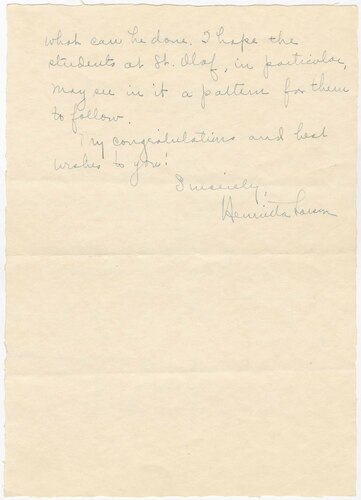 what can be done. I hope the
students at St. Olaf, in particular,
may see in it a pattern for them
to follow.
My congratulations and best
wishes to you!
Sincerely,
Henrietta Larson